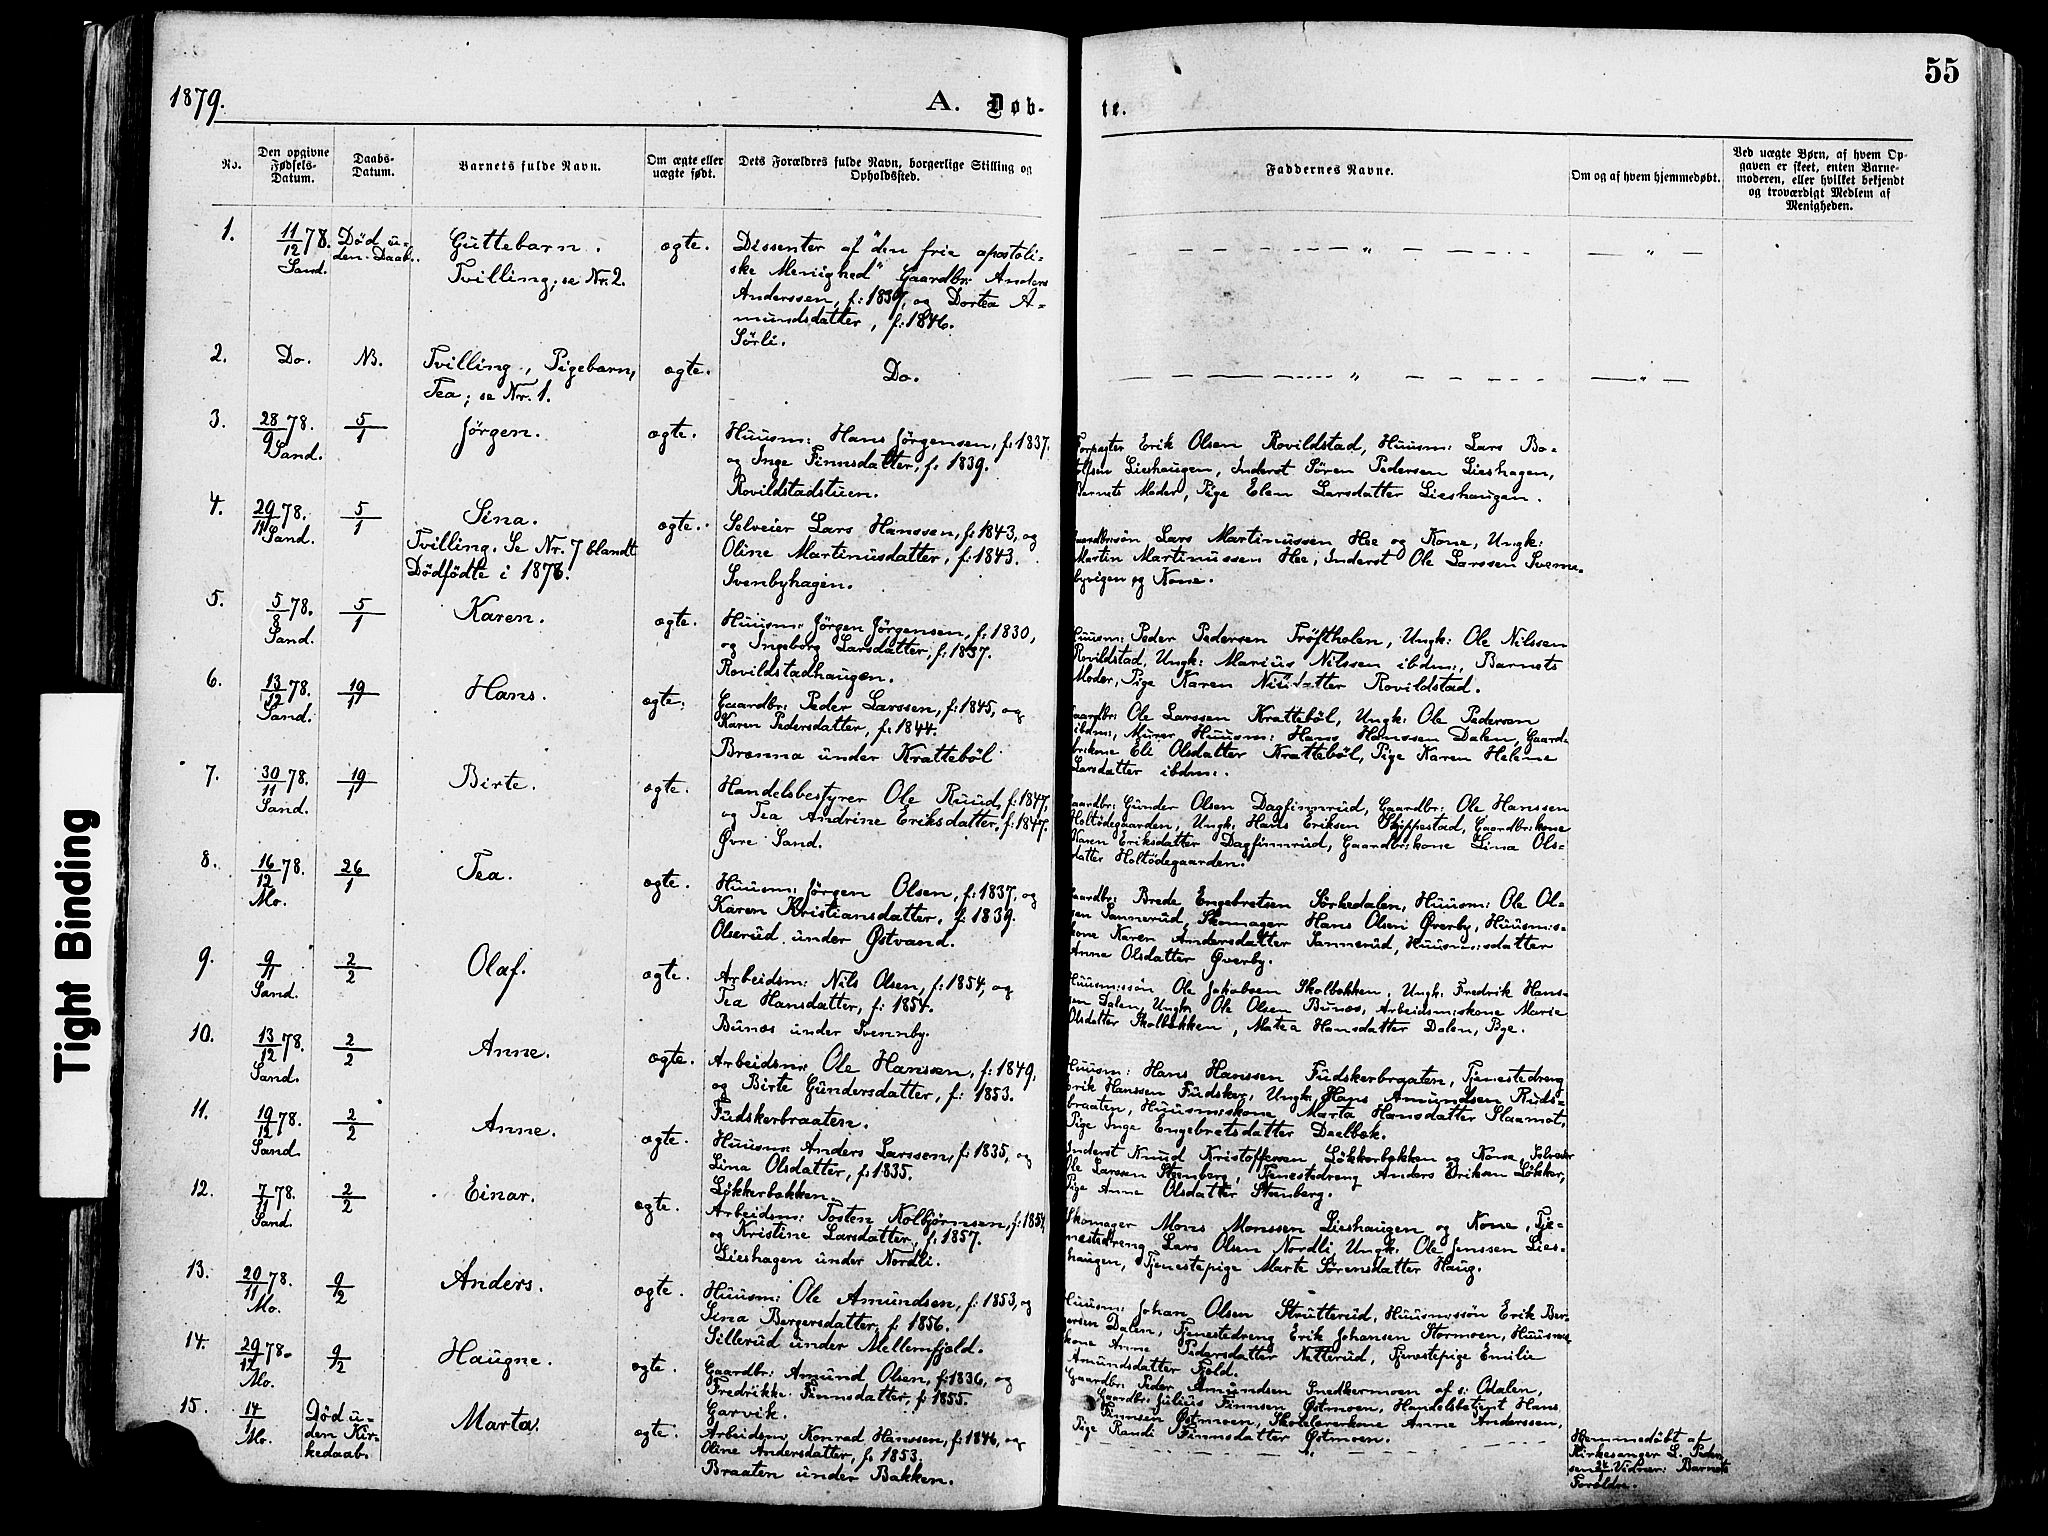 1879.
A. Døb-
te.
55
No.
Den opgivne
Fødsels-
Datum.
Daabs-
Datum.
Barnets fulde Navn.
Om ægte eller
uægte født.
Dets Forældres fulde Navn, borgerlige Stilling og
Opholdssted.
Faddernes Navne.
Om og af hvem hjemmedøbt.
Ved uægte Børn, af hvem Op-
gaven er skeet, enten Barne-
moderen, eller hvilket bekjendt
og troværdigt Medlem af
Menigheden.
1.
11/12 78.
Sand.
Død u-
den Daab.
Guttebarn.
Tvilling; se Nr. 2.
ægte.
Dissenter af "den frie apostoli-
ske Menighed" Gaardbr: Anders
Anderssen, f: 1839, og Dortea A-
mundsdatter, f: 1846.
Sörli.
2.
Do.
NB.
Tvilling, Pigebarn,
Tea; se Nr. 1.
ægte.
Do.
3.
28/9 78.
Sand.
5/1
Jörgen.
ægte.
Huusm: Hans Jörgensen, f: 1837.
og Inge Finnsdatter, f: 1839.
Rovildstadstuen.
Forpagter Erik Olsen Rovildstad, Huusm: Lars Bo-
tolfsen Lieshaugen, Inderst Sören Pedersen Lieshagen,
Barnets Moder, Pige Elen Larsdatter Lieshaugen.
4.
29/11 78.
Sand.
5/1
Sina.
Tvilling. Se Nr. 7 blandt
Dödfödte i 1878.
ægte.
Selveier Lars Hanssen, f: 1843, og
Oline Martinusdatter, f: 1843.
Svenbyhagen.
Gaardbrsön Lars Martinussen Hee og Kone, Ungk:
Martin Martinussen Hee, Inderst Ole Larssen Svenne-
byvigen og Kone.
5.
5/8 78.
Sand.
5/1
Karen.
ægte.
Huusm: Jörgen Jörgensen, f: 1830,
og Ingeborg Larsdatter, f: 1837.
Rovildstadhaugen.
Huusm: Peder Pedersen Tröftholen, Ungk: Ole Nilssen
Rovildstad, Ungk: Marius Nilssen ibdm:, Barnets
Moder, Pige Karen Rovildstad.
6.
13/12 78.
Sand.
19/1
Hans.
ægte.
Gaardbr: Peder Larssen, f: 1845, og
Karen Pedersdatter, f: 1844.
Brænna under Kratteböl
Gaardbr: Ole Larssen Kratteböl, Ungk: Ole Pedersen
ibdm:, Murer Huusm: Hans Hanssen Dalen, Gaard-
brkone Eli Olsdatter Kratteböl, Pige Karen Helene
Larsdatter ibdm:.
7.
30/11 78.
Sand.
19/1
Birte.
ægte.
Handelsbestyrer Ole Ruud, f: 1847,
og Tea Andrine Eriksdatter, f: 1847.
Øvre Sand.
Gaardbr: Gunder Olsen Dagfinnrud, Gaardbr: Ole Hanssen
Holtödegaarden, Ungk: Hans Eriksen Skippestad, Gaardbrkone
Karen Eriksdatter Dagfinnrud, Gaardbrkone Lina Ols-
datter Holtödegaarden.
8.
16/12 78.
Mo.
26/1
Tea.
ægte.
Huusm: Jörgen Olsen, f: 1837, og
Karen Kristiansdatter, f: 1839.
Olserud under Østvand.
Gaardbr: Brede Engebretsen Sörkedalen, Huusm: Ole Ol-
sen Sannerud, Skomager Hans Olsen Øverby, Huusms-
kone Karen Andersdatter Sannerud, Huusmsdatter
Anne Olsdatter Øverby.
9.
9/11
Sand.
2/2
Olaf.
ægte.
Arbeidsm: Nils Olsen, f: 1854, og
Tea Hansdatter, f: 1854.
Bunæs under Svennby.
Huusmssön Ole Jakobsen Skolbækken, Ungk: Fredrik Hans-
sen Dalen, Ungk: Ole Olsen Bunæs, Arbeidsmskone Marie
Olsdatter Skolbækken, Matea Hansdatter Dalen, Pige.
10.
13/12 78.
Sand.
2/2
Anne.
ægte.
Arbeidsm: Ole Hanssen, f: 1849,
og Birte Gundersdatter, f: 1853.
Fudskerbraaten.
Huusm: Hans Hanssen Fudskerbraaten, Tjenestedreng
Erik Hanssen Fudsker, Ungk: Hans Amundsen Ruds-
braaten, Huusmskone Marta Hansdatter Slaamot,
Pige Inge Engebretsdatter Dælbæk.
11.
19/12 78.
Sand.
2/2
Anne.
ægte.
Huusm: Anders Larssen, f: 1835, og
Lina Olsdatter, f: 1835.
Lökkerbakken.
Inderst Knud Kristoffersen Lökkerbakken og Kone, Selveier
Ole Larssen Stenberg, Tjenestedreng Anders Eriksen Lökker,
Pige Anne Olsdatter Stenberg.
12.
7/11 78.
Sand.
2/2
Einar.
ægte.
Arbeidsm: Tosten Kolbjörnsen, f: 1854
og Kristine Larsdatter, f: 1857.
Lieshagen under Nordli.
Skomager Mons Monssen Lieshaugen og Kone, Tje-
nestedreng Lars Olsen Nordli, Ungk: Ole Jenssen Lies-
haugen, Tjenestepige Marte Sörensdatter Haug.
13.
20/11 78.
Mo.
9/2
Anders.
ægte.
Huusm: Ole Amundsen, f: 1853, og
Sina Bergersdatter, f: 1856.
Sillerud under Mellemfjeld.
Huusm: Johan Olsen Strutterud, Huusmssön Erik Ber-
gersen Dalen, Tjenestedreng Erik Johansen Stormoen, Huusms-
kone Anne Pedersdatter Netterud, Tjenestepige Emilie
Amundsdatter Fjeld.
14.
29/12 78.
Mo.
9/2
Haugne.
ægte.
Gaardbr: Amund Olsen, f: 1836, og
Fredrikke Finnsdatter, f: 1855.
Garvik.
Gaardbr: Peder Amundsen Snedkermoen af s: Odalen,
Gaardbr: Julius Finnsen Østmoen, Handelsbetjent Hans
Finnsen Østmoen, Skolelærerkone Anne Anderssen,
Pige Randi Finnsdatter Østmoen.
15.
14/1
Mo.
Död u-
den Kir-
kedaab.
Marta.
ægte.
Arbeidsm: Konrad Hanssen, f: 1846, og
Oline Andersdatter, f: 1853.
Braaten under Bakken.
Hjemmedøbt af
Kirkesanger L. Peder-
sen Vidner: Barnets
Forældre.
Tight Binding